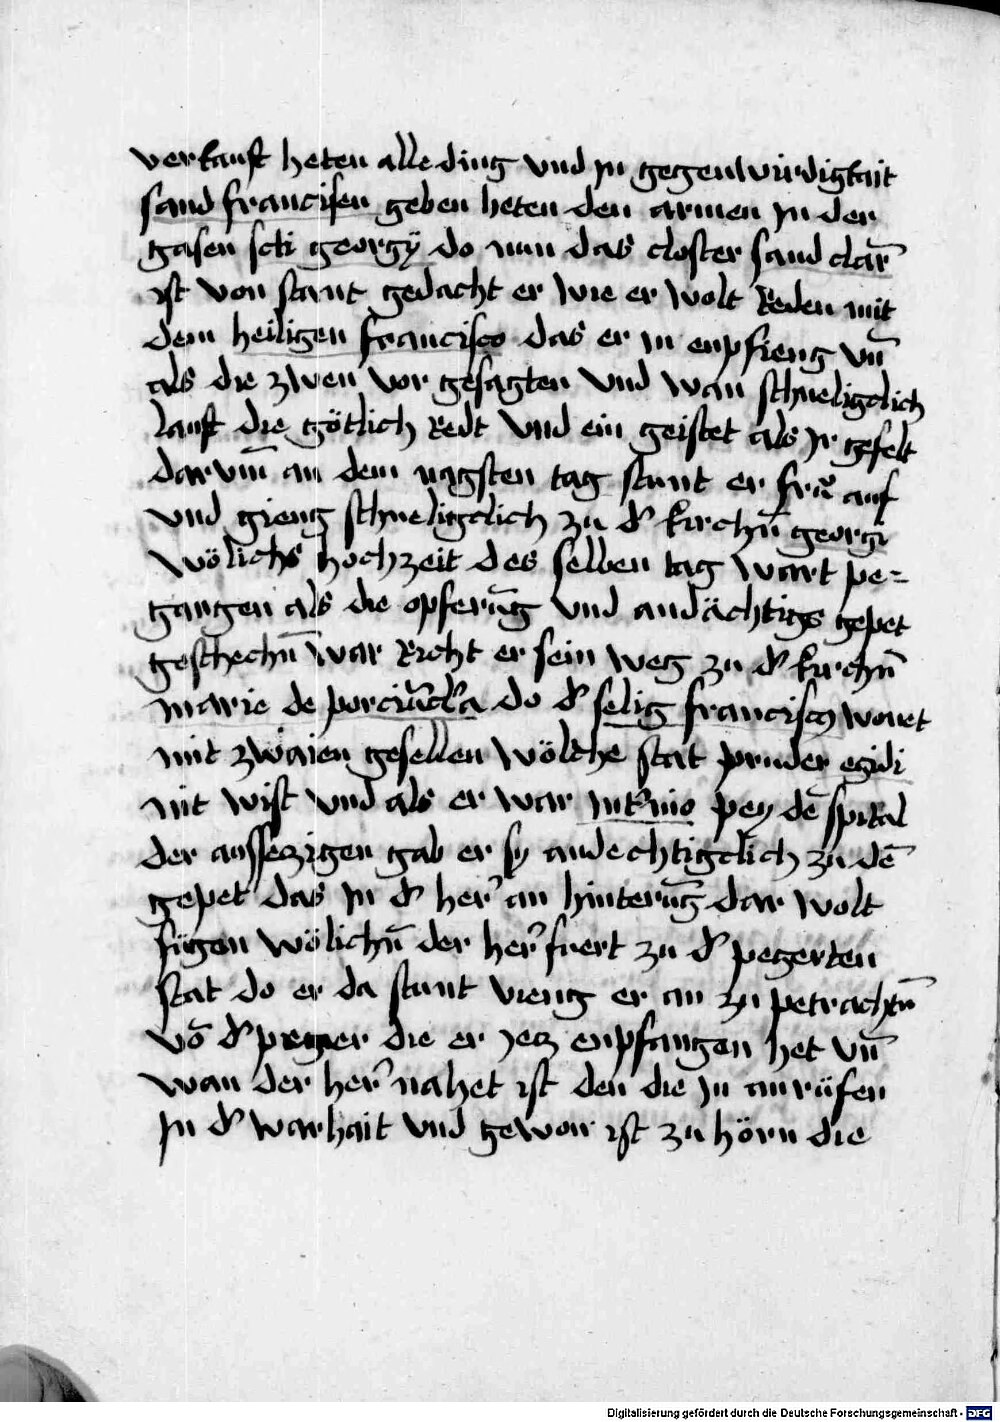 verkauft heten alle ding vnd jn gegenwirdigkait
sand francisen geben heten den armen jn der
gasen scti georgÿ do nun das closter sand clar̄
ist von stant gedacht er wie er wolt Reden mit
dem heiligen francisco das er in enpfieng vn̄
als die zwen vor gesagten vnd wan schneligclich
lauft die götlich Redt vnd ein geistet als jr gefelt
darvm̄ an dem nagsten tag stunt er frů auf
vnd gieng schneligclich zu dˀ kirchn̄ georgi
wölichs hochzeit des selben tag wart pe=
gangen als die opferūg vnd andächtigs gepet
geschechn̄ war Richt er sein weg zu dˀ kirchn̄
marie de porciūcl̄a do dˀ selig francisco wonet
mit zwaien gesellen wölche stat pruder egidi
nit wist vnd als er war pey dē spital
der aussezigen gab er sy andechtigclich zu dē
gepet das jn dˀ herˀ an hinterūg dar wolt
fügen wölichn̄ der herˀ fuert zu dˀ pegerten
stat do er da stunt vieng er an zu petrachtn̄
vō dˀ die er jecz enpfangen het vn̄
wan der herˀ nahet ist den die jn anrüfen
jn dˀ warhait vnd gewon ist zu hörn die
Digitalisierung gefördert durch die Deutsche Forschungsgemeinschaft - DFG